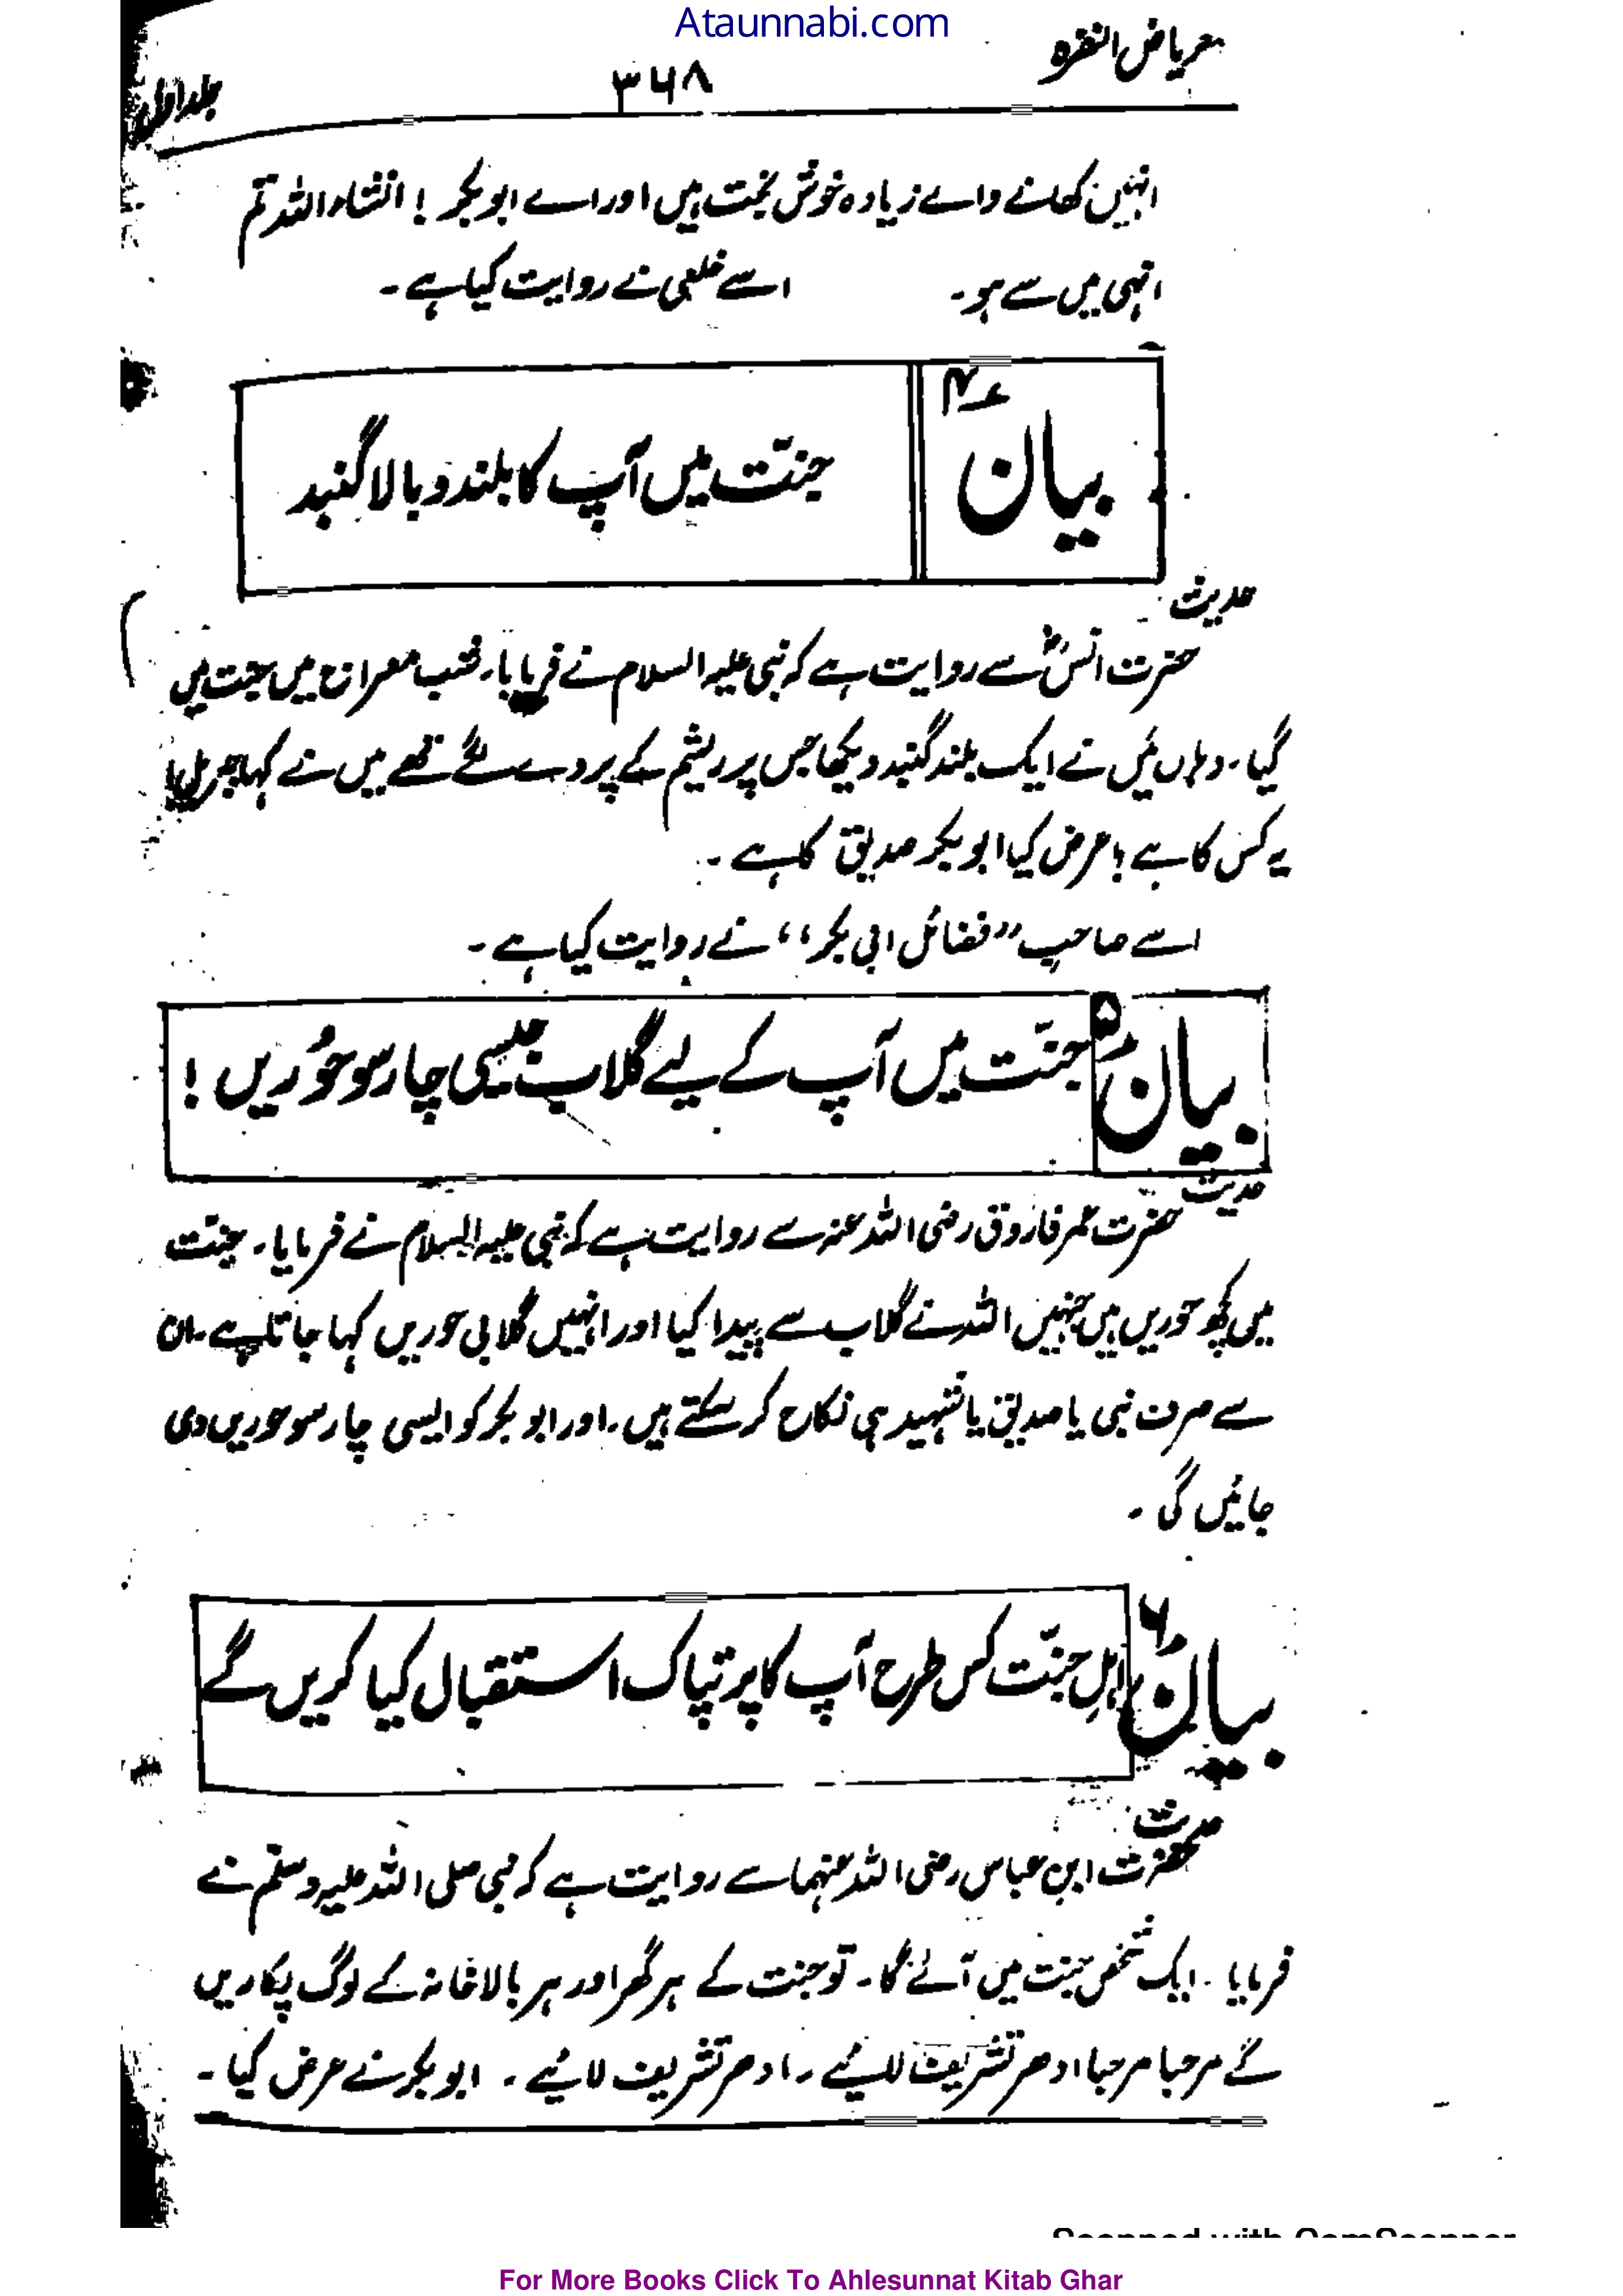 Ataunnabi.com
ریاض النضرہ
۳۶۸
جلد اول
انہیں کھانے والے زیادہ خوش بخت ہیں اور اے ابو بکر ! انشاء اللہ تم
انہی میں سے ہو۔ اسے خلعی نے روایت کیا ہے۔
بیان ۴ جنّت میں آپ کا بلند و بالا گنبد
حدیث
حضرت انسؓ سے روایت ہے کہ نبی علیہ السلام نے فرمایا۔ شب معراج میں جنت میں
گیا۔ وہاں میں نے ایک بلند گنبد دیکھا جس پر ریشم کے پردے لگے تھے میں نے کہا جبریل!
یہ کس کا ہے ؟ عرض کیا ابو بکر صدیق کا ہے۔
اسے صاحب ”فضائل ابی بکر“ نے روایت کیا ہے۔
بیان ۵ جنّت میں آپ کے لیے گلاب جیسی چار سو حُوریں !
حدیث
حضرت عمر فاروق رضی اللہ عنہ سے روایت ہے کہ نبی علیہ السلام نے فرمایا۔ جنّت
میں کچھ حوریں ہیں جنہیں اللہ نے گلاب سے پیدا کیا اور انہیں گلابی حوریں کہا جاتا ہے۔ ان
سے صرف نبی یا صدیق یا شہید ہی نکاح کر سکتے ہیں۔ اور ابو بکر کو ایسی چار سو حوریں دی
جائیں گی۔
بیان ۶ اہلِ جنّت کس طرح آپ کا پرتپاک استقبال کیا کریں گے
حدیث
حضرت ابن عباس رضی اللہ عنہما سے روایت ہے کہ نبی صلی اللہ علیہ وسلم نے
فرمایا۔ ایک شخص جنت میں آئے گا۔ تو جنت کے ہر گھر اور ہر بالا خانہ کے لوگ پکاریں
گے مرحبا مرحبا ادھر تشریف لائیے۔ ادھر تشریف لائیے۔ ابو بکر نے عرض کیا۔
Scanned with CamScanner
For More Books Click To Ahlesunnat Kitab Ghar